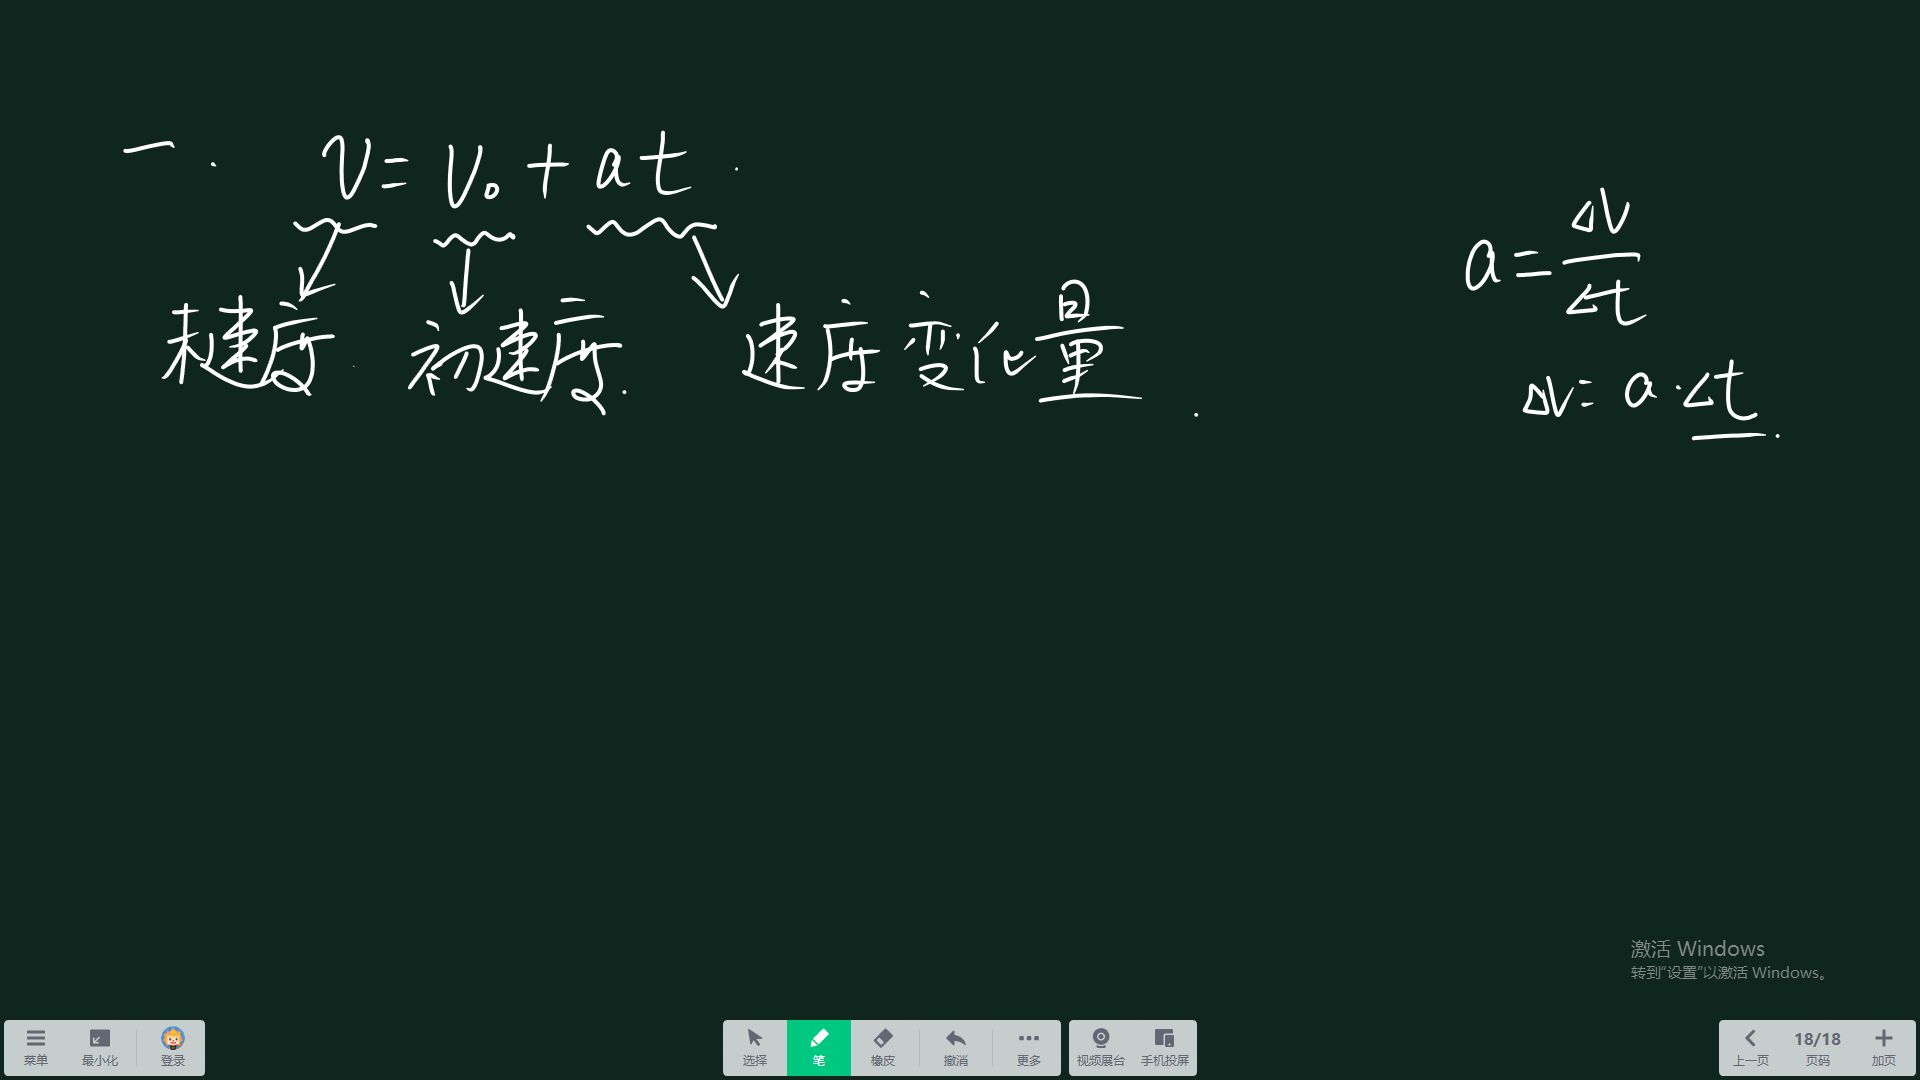 一. v = v₀ + at.
末速度. 初速度. 速度变化量.
a = Δv/Δt
Δv = a·Δt.
激活 Windows
转到“设置”以激活 Windows。
菜单 最小化 登录 选择 笔 橡皮 撤消 更多 视频展台 手机投屏 上一页 18/18 页码 加页